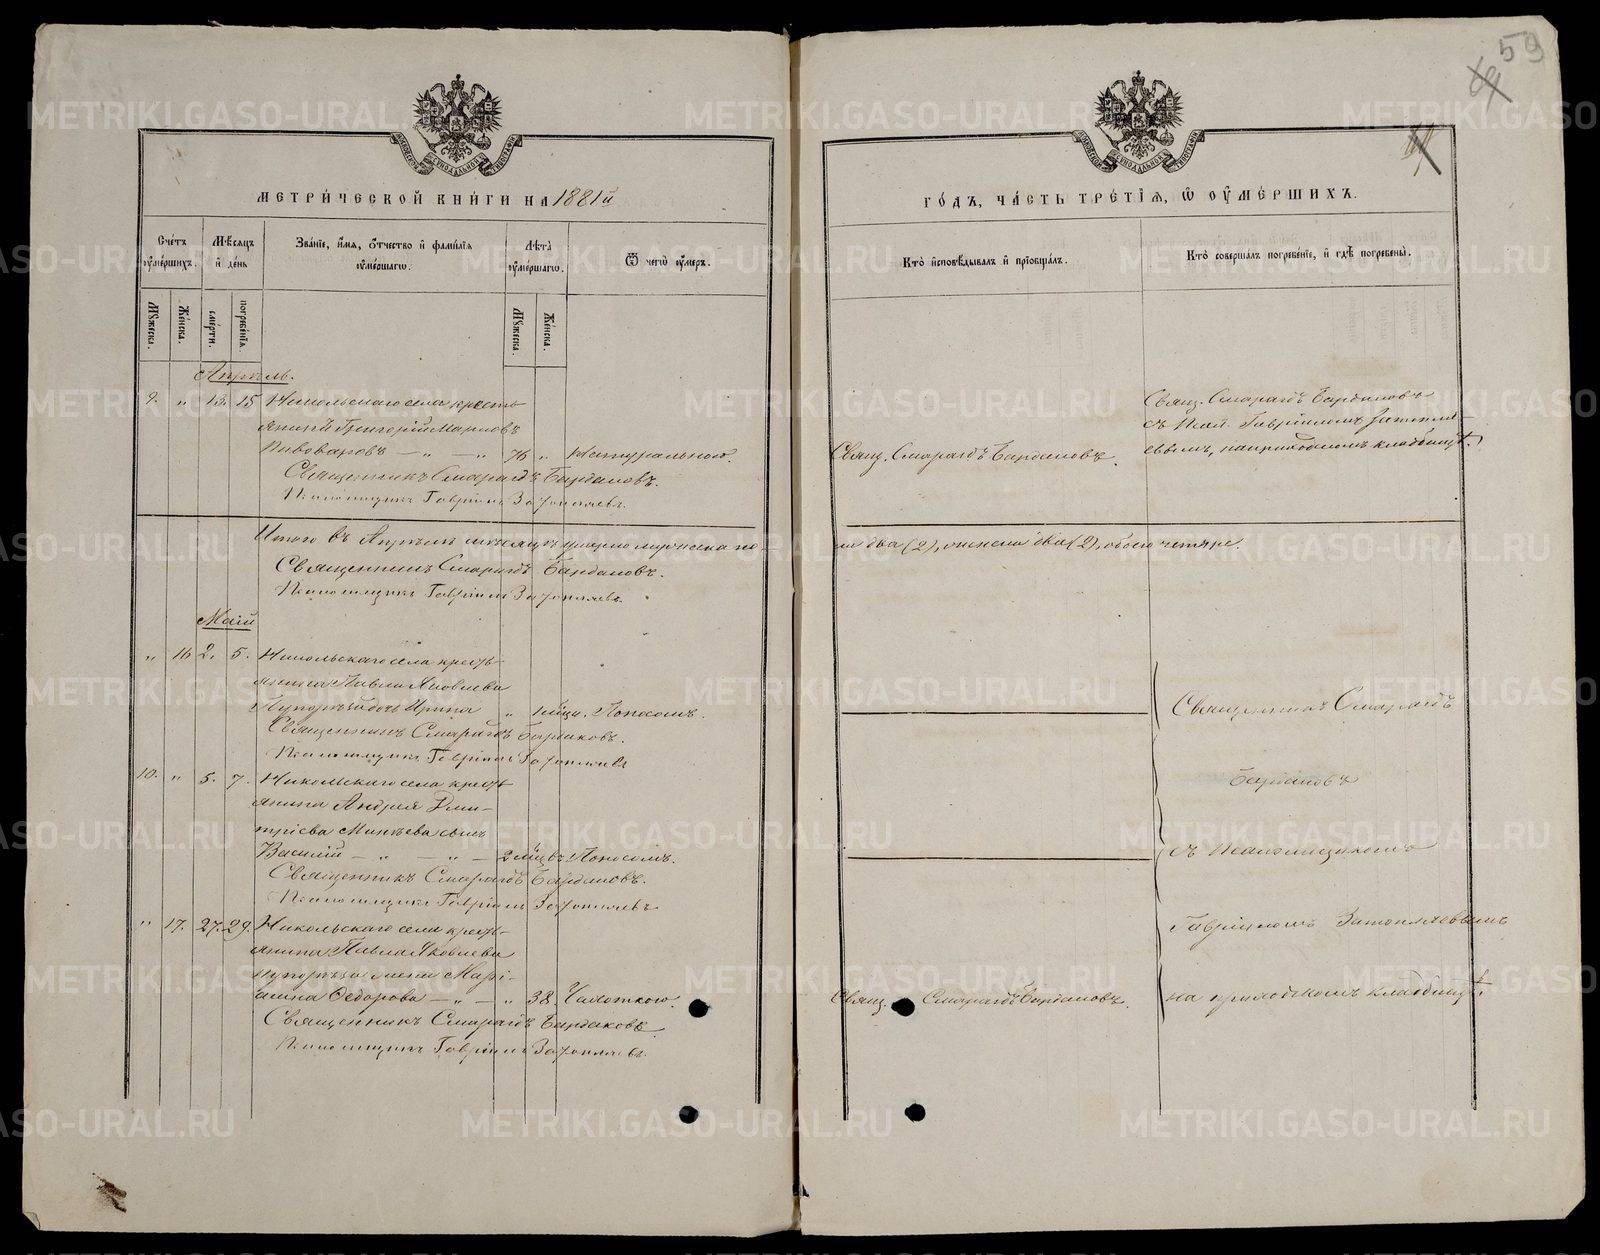 59
МЕТРИ́ЧЕСКОЙ КНИ́ГИ НА 1881й
Сче́тъ ᲂу҆ме́ршихъ.
Мѣ́сяцъ и҆ де́нь
Зва́нїе, и҆́мя, ѻ҆́тчество и҆ фами́лїя ᲂу҆ме́ршагѡ.
Лѣта̀ ᲂу҆ме́ршагѡ.
Ѿ чегѡ̀ ᲂу҆́меръ.
Мꙋ́жеска.
Же́нска.
сме́рти.
погребе́нїя.
Мꙋ́жеска.
Же́нска.
Апрѣль.
9. " 13. 15 Никольскаго села кресть
янинъ Григорій Марковъ
Пивоваровъ — " — " 76 " Натуральною.
Священникъ Смарагдъ Бардаковъ.
Псаломщикъ Гавріилъ Затопляевъ.
Итого въ Апрѣлѣ мѣсяцѣ умерло мужеска по-
Священникъ Смарагдъ Бардаковъ.
Псаломщикъ Гавріилъ Затопляевъ.
Маій
" 16 2. 5. Никольскаго села кресть-
янина Павла Яковлева
дочь Ирина " 1 мѣсц. Поносомъ.
Священникъ Смарагдъ Бардаковъ.
Псаломщикъ Гавріилъ Затопляевъ
10. " 5. 7. Никольскаго села кресть
янина Андрея Дми-
тріева Минѣева сынъ
Василій — " — " — 2 мѣсц. " Поносомъ.
Священникъ Смарагдъ Бардаковъ.
Псаломщикъ Гавріилъ Затопляевъ
" 17. 27. 29. Никольскаго села кресть-
янина Павла Яковлева
жена Марі-
амна Ѳедорова — " — " 38. Чахоткою.
Священникъ Смарагдъ Бардаковъ
Псаломщикъ Гавріилъ Затопляевъ.
ГО́ДЪ, ЧА́СТЬ ТРЕ́ТЇЯ, Ѡ҆ ОУ҆МЕ́РШИХЪ.
Кто̀ и҆сповѣ́дывалъ и҆ прїѡбща́лъ.
Кто̀ соверша́лъ погребе́нїе, и҆ гдѣ̀ погребены̀.
Свящ. Смарагдъ Бардаковъ
съ Псал. Гавріиломъ Затопля-
Свящ. Смарагдъ Бардаковъ. евымъ, на приходскомъ кладбищѣ.
ла два (2), и женска два (2), обоего четыре.
Священникъ Смарагдъ
Бардаковъ
съ Псаломщикомъ
Гавріиломъ Затопляевымъ
Свящ. Смарагдъ Бардаковъ. на приходскомъ кладбищѣ.